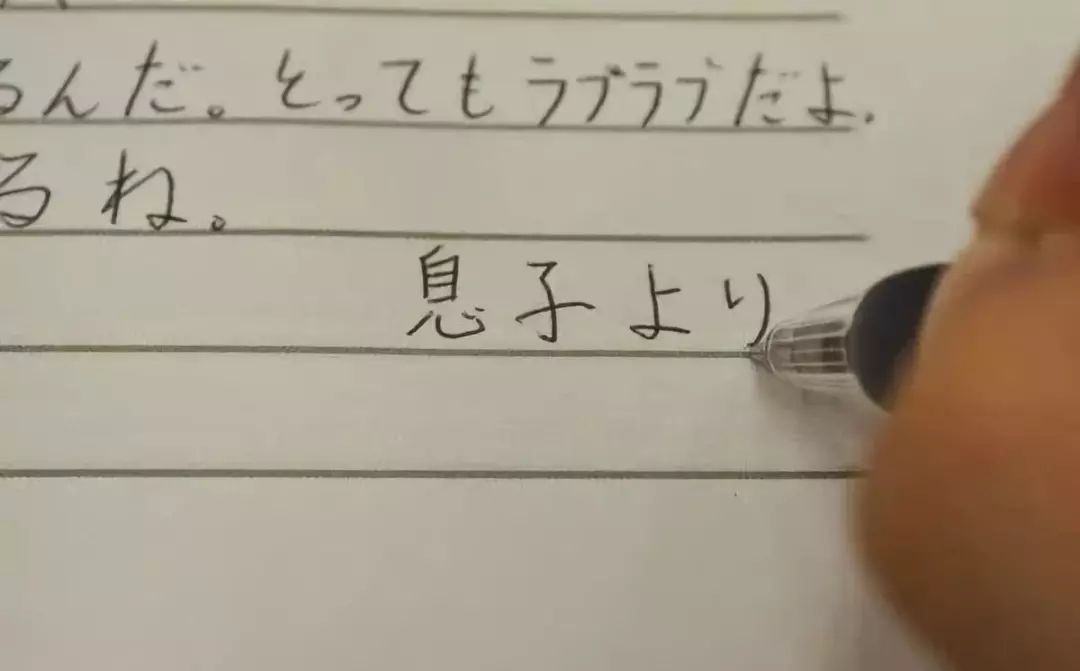 るんだ。とってもラブラブだよ.
るね。
息子より